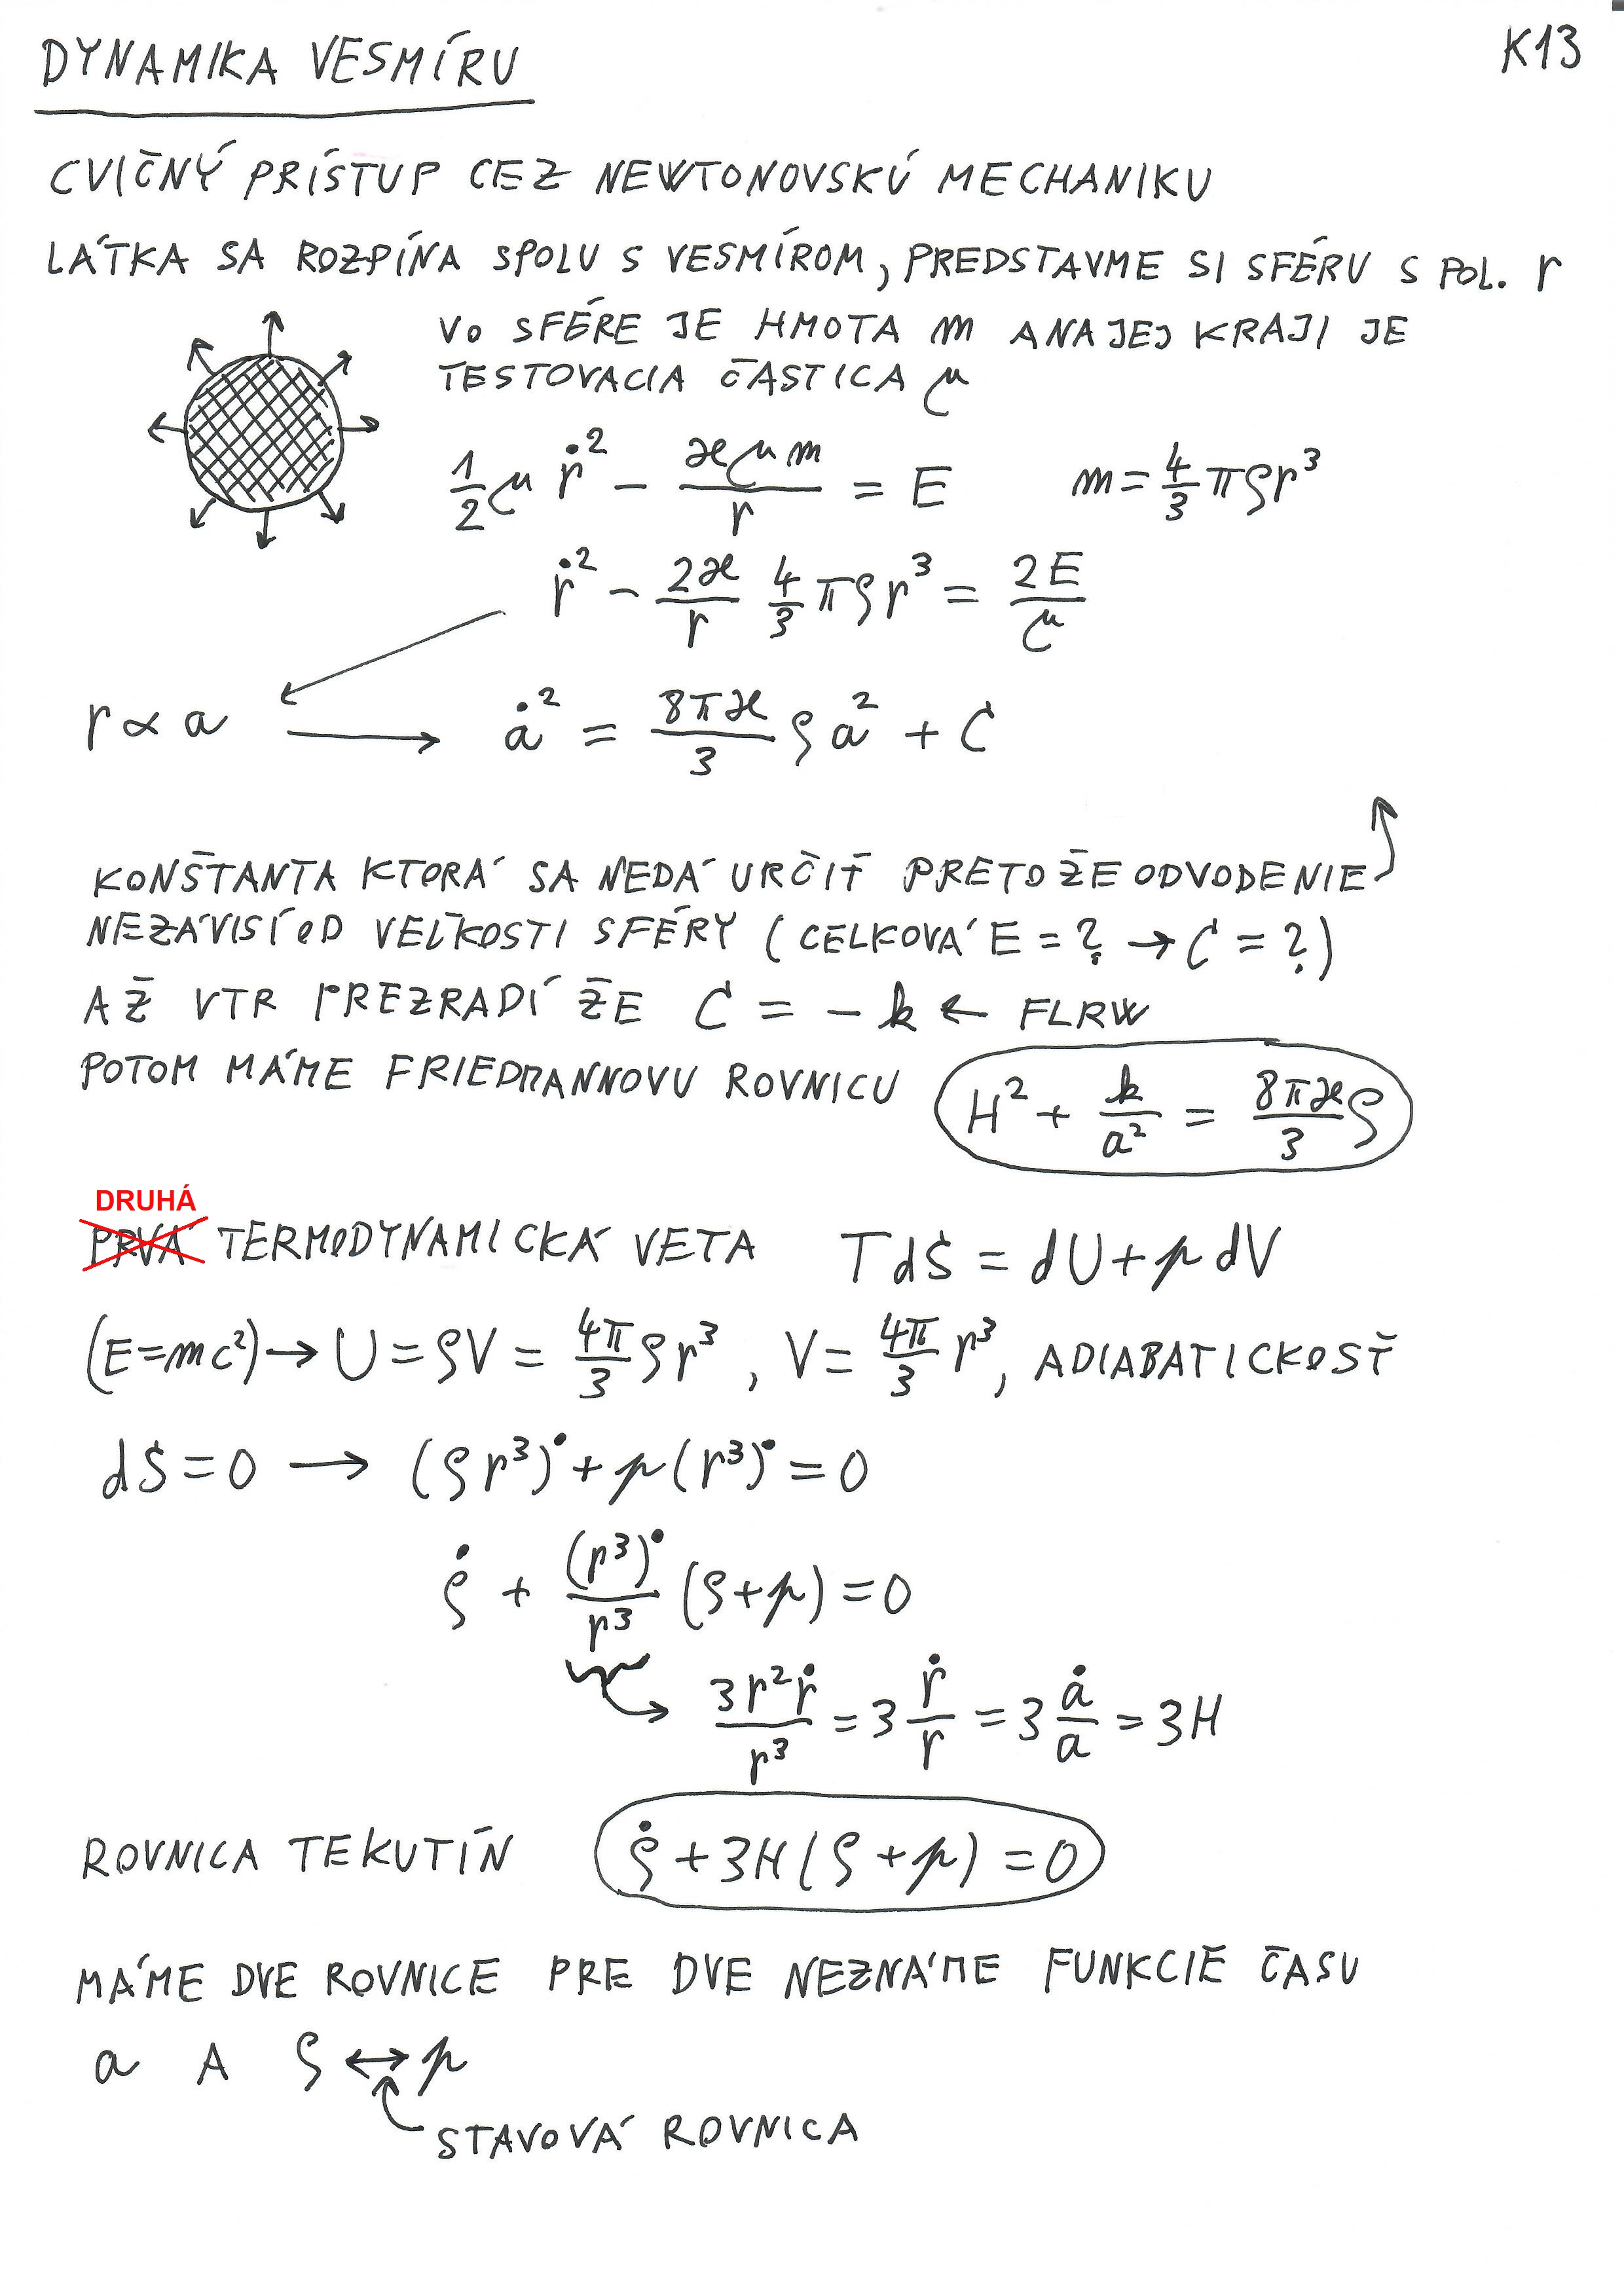 DYNAMIKA VESMÍRU
K13
CVIČNÝ PRÍSTUP CEZ NEWTONOVSKÚ MECHANIKU
LÁTKA SA ROZPÍNA SPOLU S VESMÍROM, PREDSTAVME SI SFÉRU S POL. r
VO SFÉRE JE HMOTA m A NA JEJ KRAJI JE
TESTOVACIA ČASTICA μ
1/2 μ ṙ² − ϰμm/r = E    m = 4/3 πρr³
ṙ² − 2ϰ/r 4/3 πρr³ = 2E/μ
r ∝ a → ȧ² = 8πϰ/3 ρa² + C
KONŠTANTA KTORÁ SA NEDÁ URČIŤ PRETOŽE ODVODENIE
NEZÁVISÍ OD VEĽKOSTI SFÉRY (CELKOVÁ E = ? → C = ?)
AŽ VTR PREZRADÍ ŽE C = − k ← FLRW
POTOM MÁME FRIEDMANNOVU ROVNICU H² + k/a² = 8πϰ/3 ρ
DRUHÁ
PRVÁ TERMODYNAMICKÁ VETA TdS = dU + p dV
(E=mc²) → U = ρV = 4π/3 ρr³, V = 4π/3 r³, ADIABATICKOSŤ
dS = 0 → (ρr³)˙ + p(r³)˙ = 0
ρ̇ + (r³)˙/r³ (ρ+p) = 0
3r²ṙ/r³ = 3 ṙ/r = 3 ȧ/a = 3H
ROVNICA TEKUTÍN ρ̇ + 3H(ρ + p) = 0
MÁME DVE ROVNICE PRE DVE NEZNÁME FUNKCIE ČASU
a A ρ ↔ p
STAVOVÁ ROVNICA